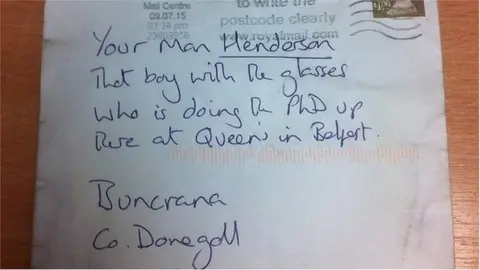 Mail Centre
09.07.15
to write the
postcode clearly
www.royalmail.com
Your Man Henderson
That boy with the glasses
who is doing the PhD up
there at Queen's in Belfast.
Buncrana
Co. Donegall